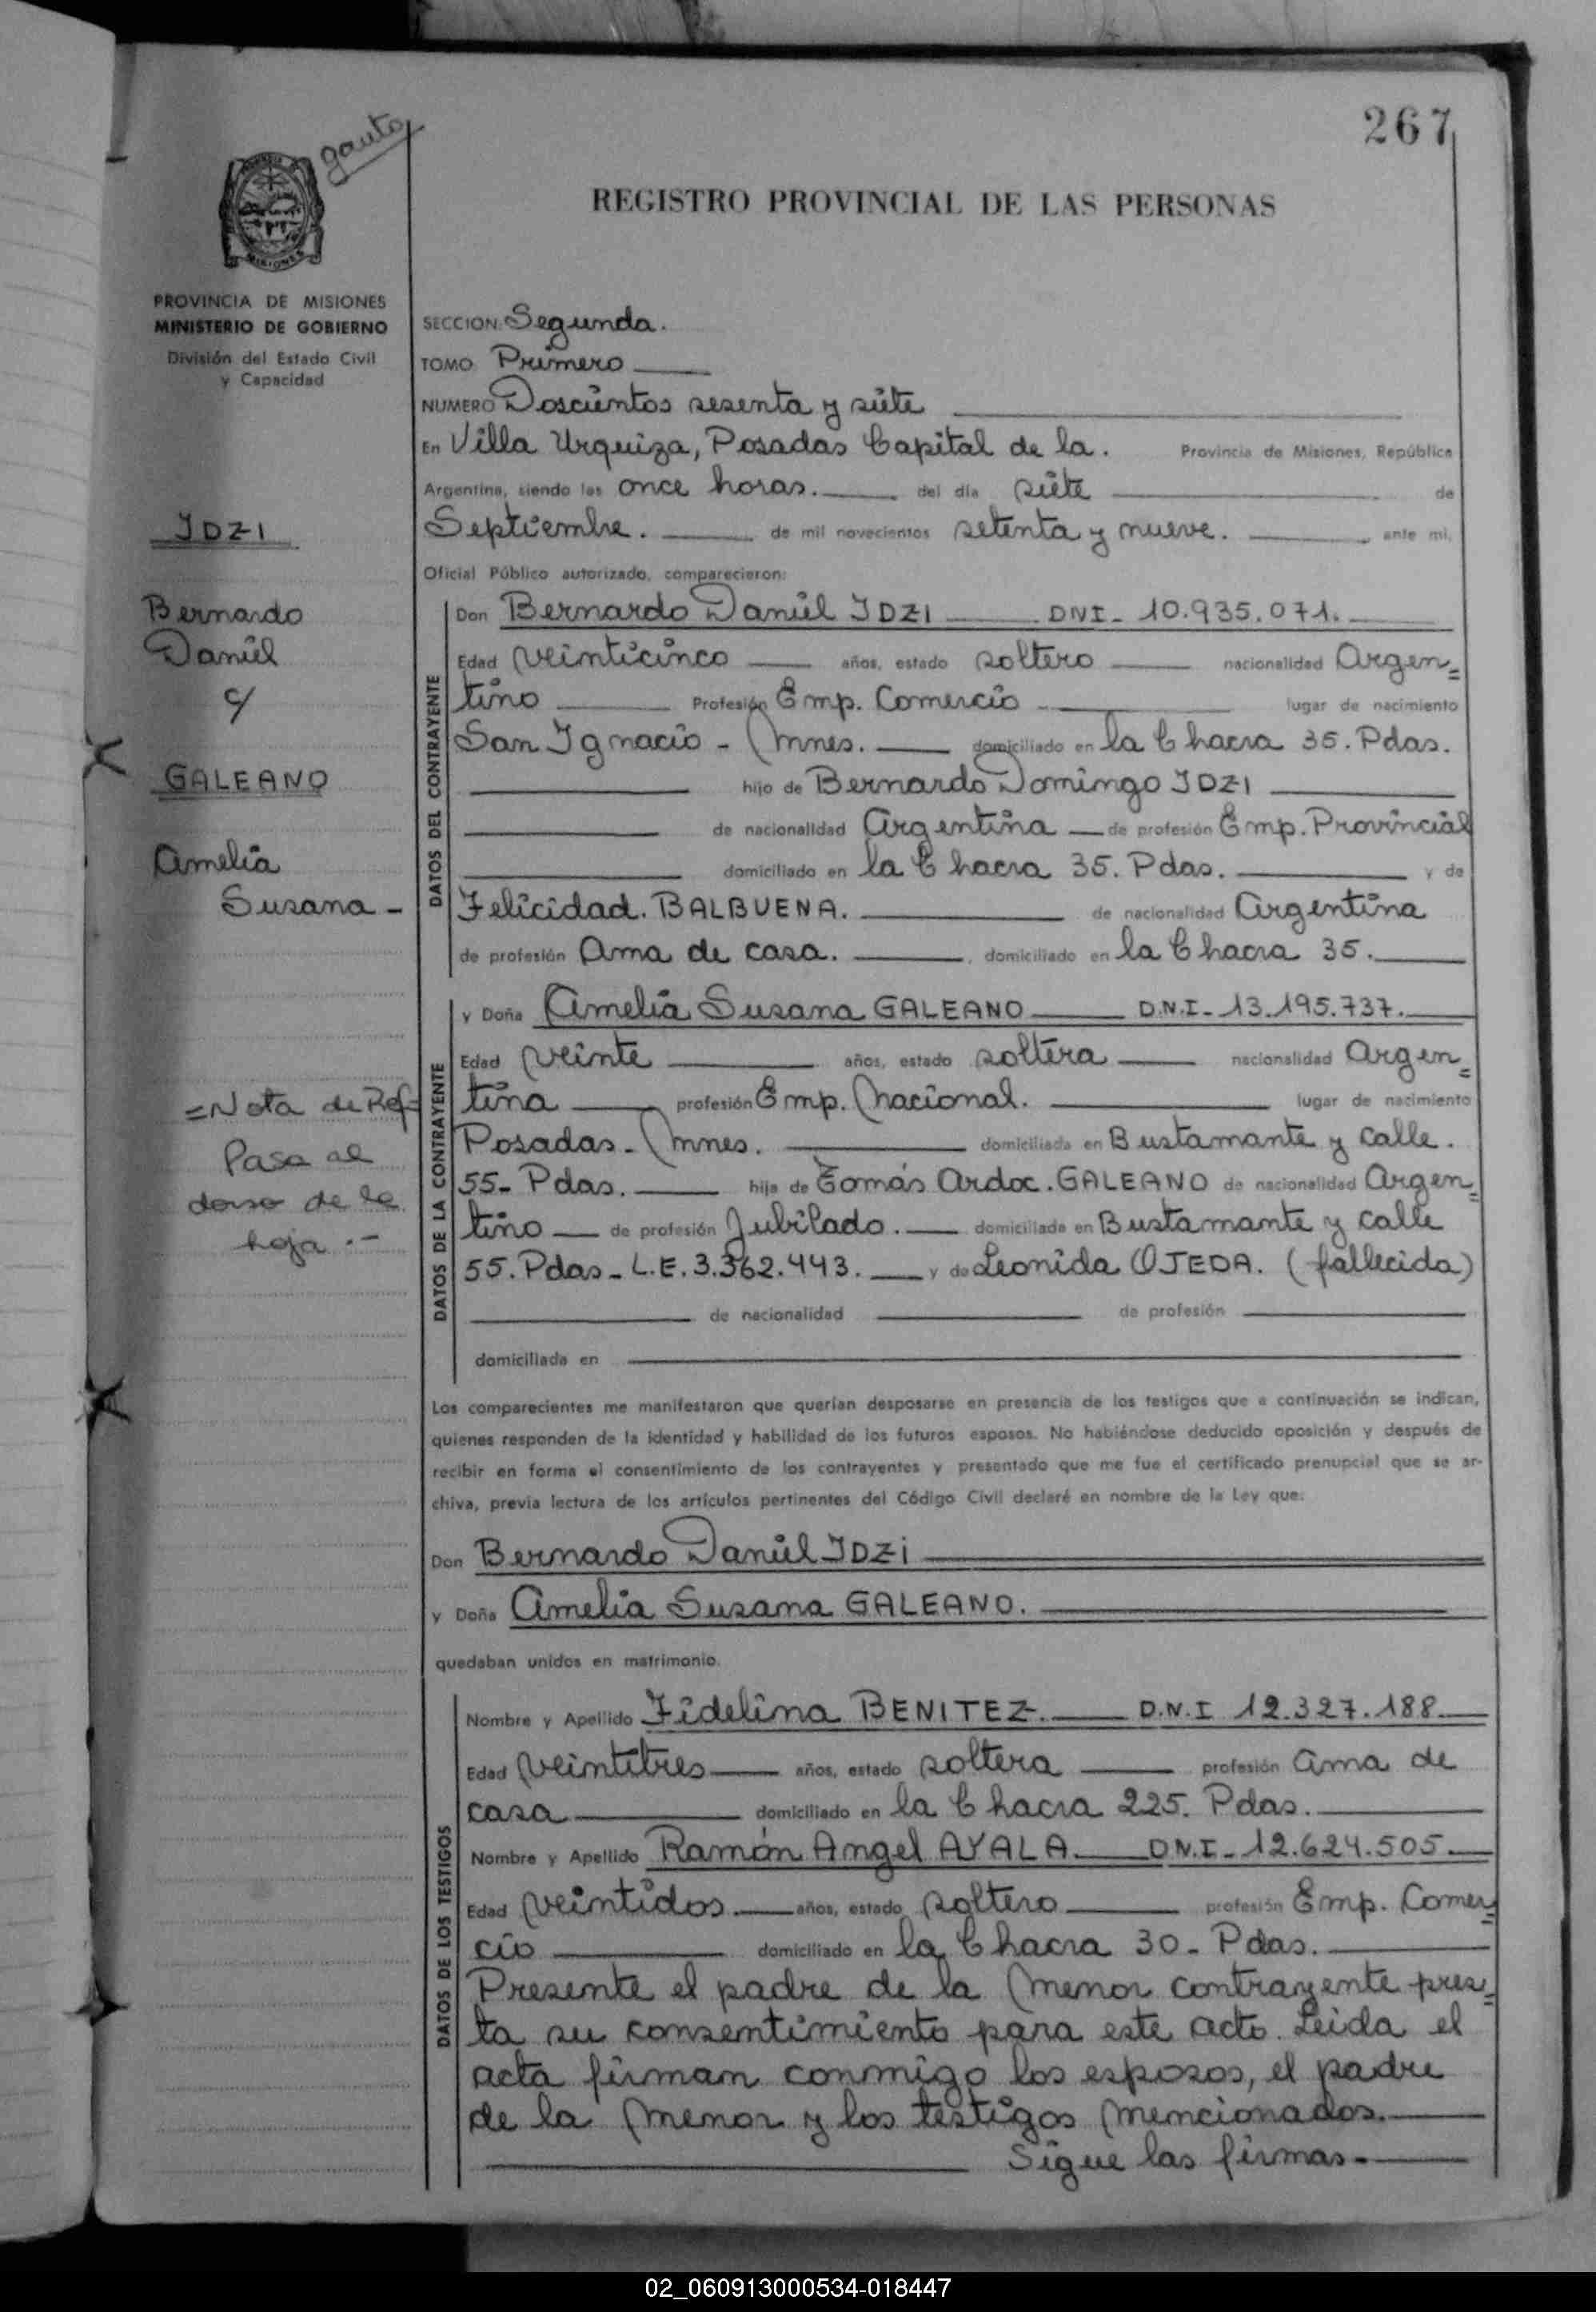 267
gauto
REGISTRO PROVINCIAL DE LAS PERSONAS
MISIONES
PROVINCIA DE MISIONES
MINISTERIO DE GOBIERNO
División del Estado Civil
y Capacidad
IDZI
Bernardo
Daniel
c/
GALEANO
Amelia
Susana -
=Nota de Ref=
Pasa al
dorso de la
hoja .-
SECCION: Segunda.
TOMO Primero
NUMERO Doscientos sesenta y siete
En Villa Urquiza, Posadas Capital de la. Provincia de Misiones, República
Argentina, siendo las once horas. del día siete de
Septiembre. de mil novecientos setenta y nueve. ante mi,
Oficial Público autorizado, comparecieron:
DATOS DEL CONTRAYENTE
Don Bernardo Daniel IDZI DNI- 10.935.071.
Edad veinticinco años, estado soltero nacionalidad Argen=
tino Profesión Emp. Comercio lugar de nacimiento
San Ignacio - Mnes. domiciliado en la Chacra 35. Pdas.
hijo de Bernardo Domingo IDZI
de nacionalidad Argentina de profesión Emp. Provincial
domiciliado en la Chacra 35. Pdas. y de
Felicidad. BALBUENA. de nacionalidad Argentina
de profesión Ama de casa. , domiciliado en la Chacra 35.
DATOS DE LA CONTRAYENTE
y Doña Amelia Susana GALEANO D.N.I- 13.195.737.
Edad veinte años, estado soltera nacionalidad Argen=
tina profesión Emp. Nacional. lugar de nacimiento
Posadas - Mnes. domiciliada en Bustamante y calle.
55- Pdas. hija de Tomás Ardoc. GALEANO de nacionalidad Argen=
tino de profesión Jubilado. domiciliada en Bustamante y calle
55. Pdas - L.E. 3.362.443. y de Leonida OJEDA. (fallecida)
de nacionalidad de profesión
domiciliada en
Los comparecientes me manifestaron que querían desposarse en presencia de los testigos que a continuación se indican,
quienes responden de la identidad y habilidad de los futuros esposos. No habiéndose deducido oposición y después de
recibir en forma el consentimiento de los contrayentes y presentado que me fue el certificado prenupcial que se ar-
chiva, previa lectura de los artículos pertinentes del Código Civil declaré en nombre de la Ley que:
Don Bernardo Daniel IDZi
y Doña Amelia Susana GALEANO.
quedaban unidos en matrimonio.
DATOS DE LOS TESTIGOS
Nombre y Apellido Fidelina BENITEZ. D.N.I 12.327.188.
Edad veintitres años, estado soltera profesión ama de
casa domiciliado en la Chacra 225. Pdas.
Nombre y Apellido Ramón Angel AYALA. D.N.I- 12.624.505.
Edad veintidos años, estado soltero profesión Emp. Comer=
cio domiciliado en la Chacra 30- Pdas.
Presente el padre de la menor contrayente pres=
ta su consentimiento para este acto. Leida el
acta firman conmigo los esposos, el padre
de la menor y los testigos mencionados.
Sigue las firmas-
02_060913000534-018447